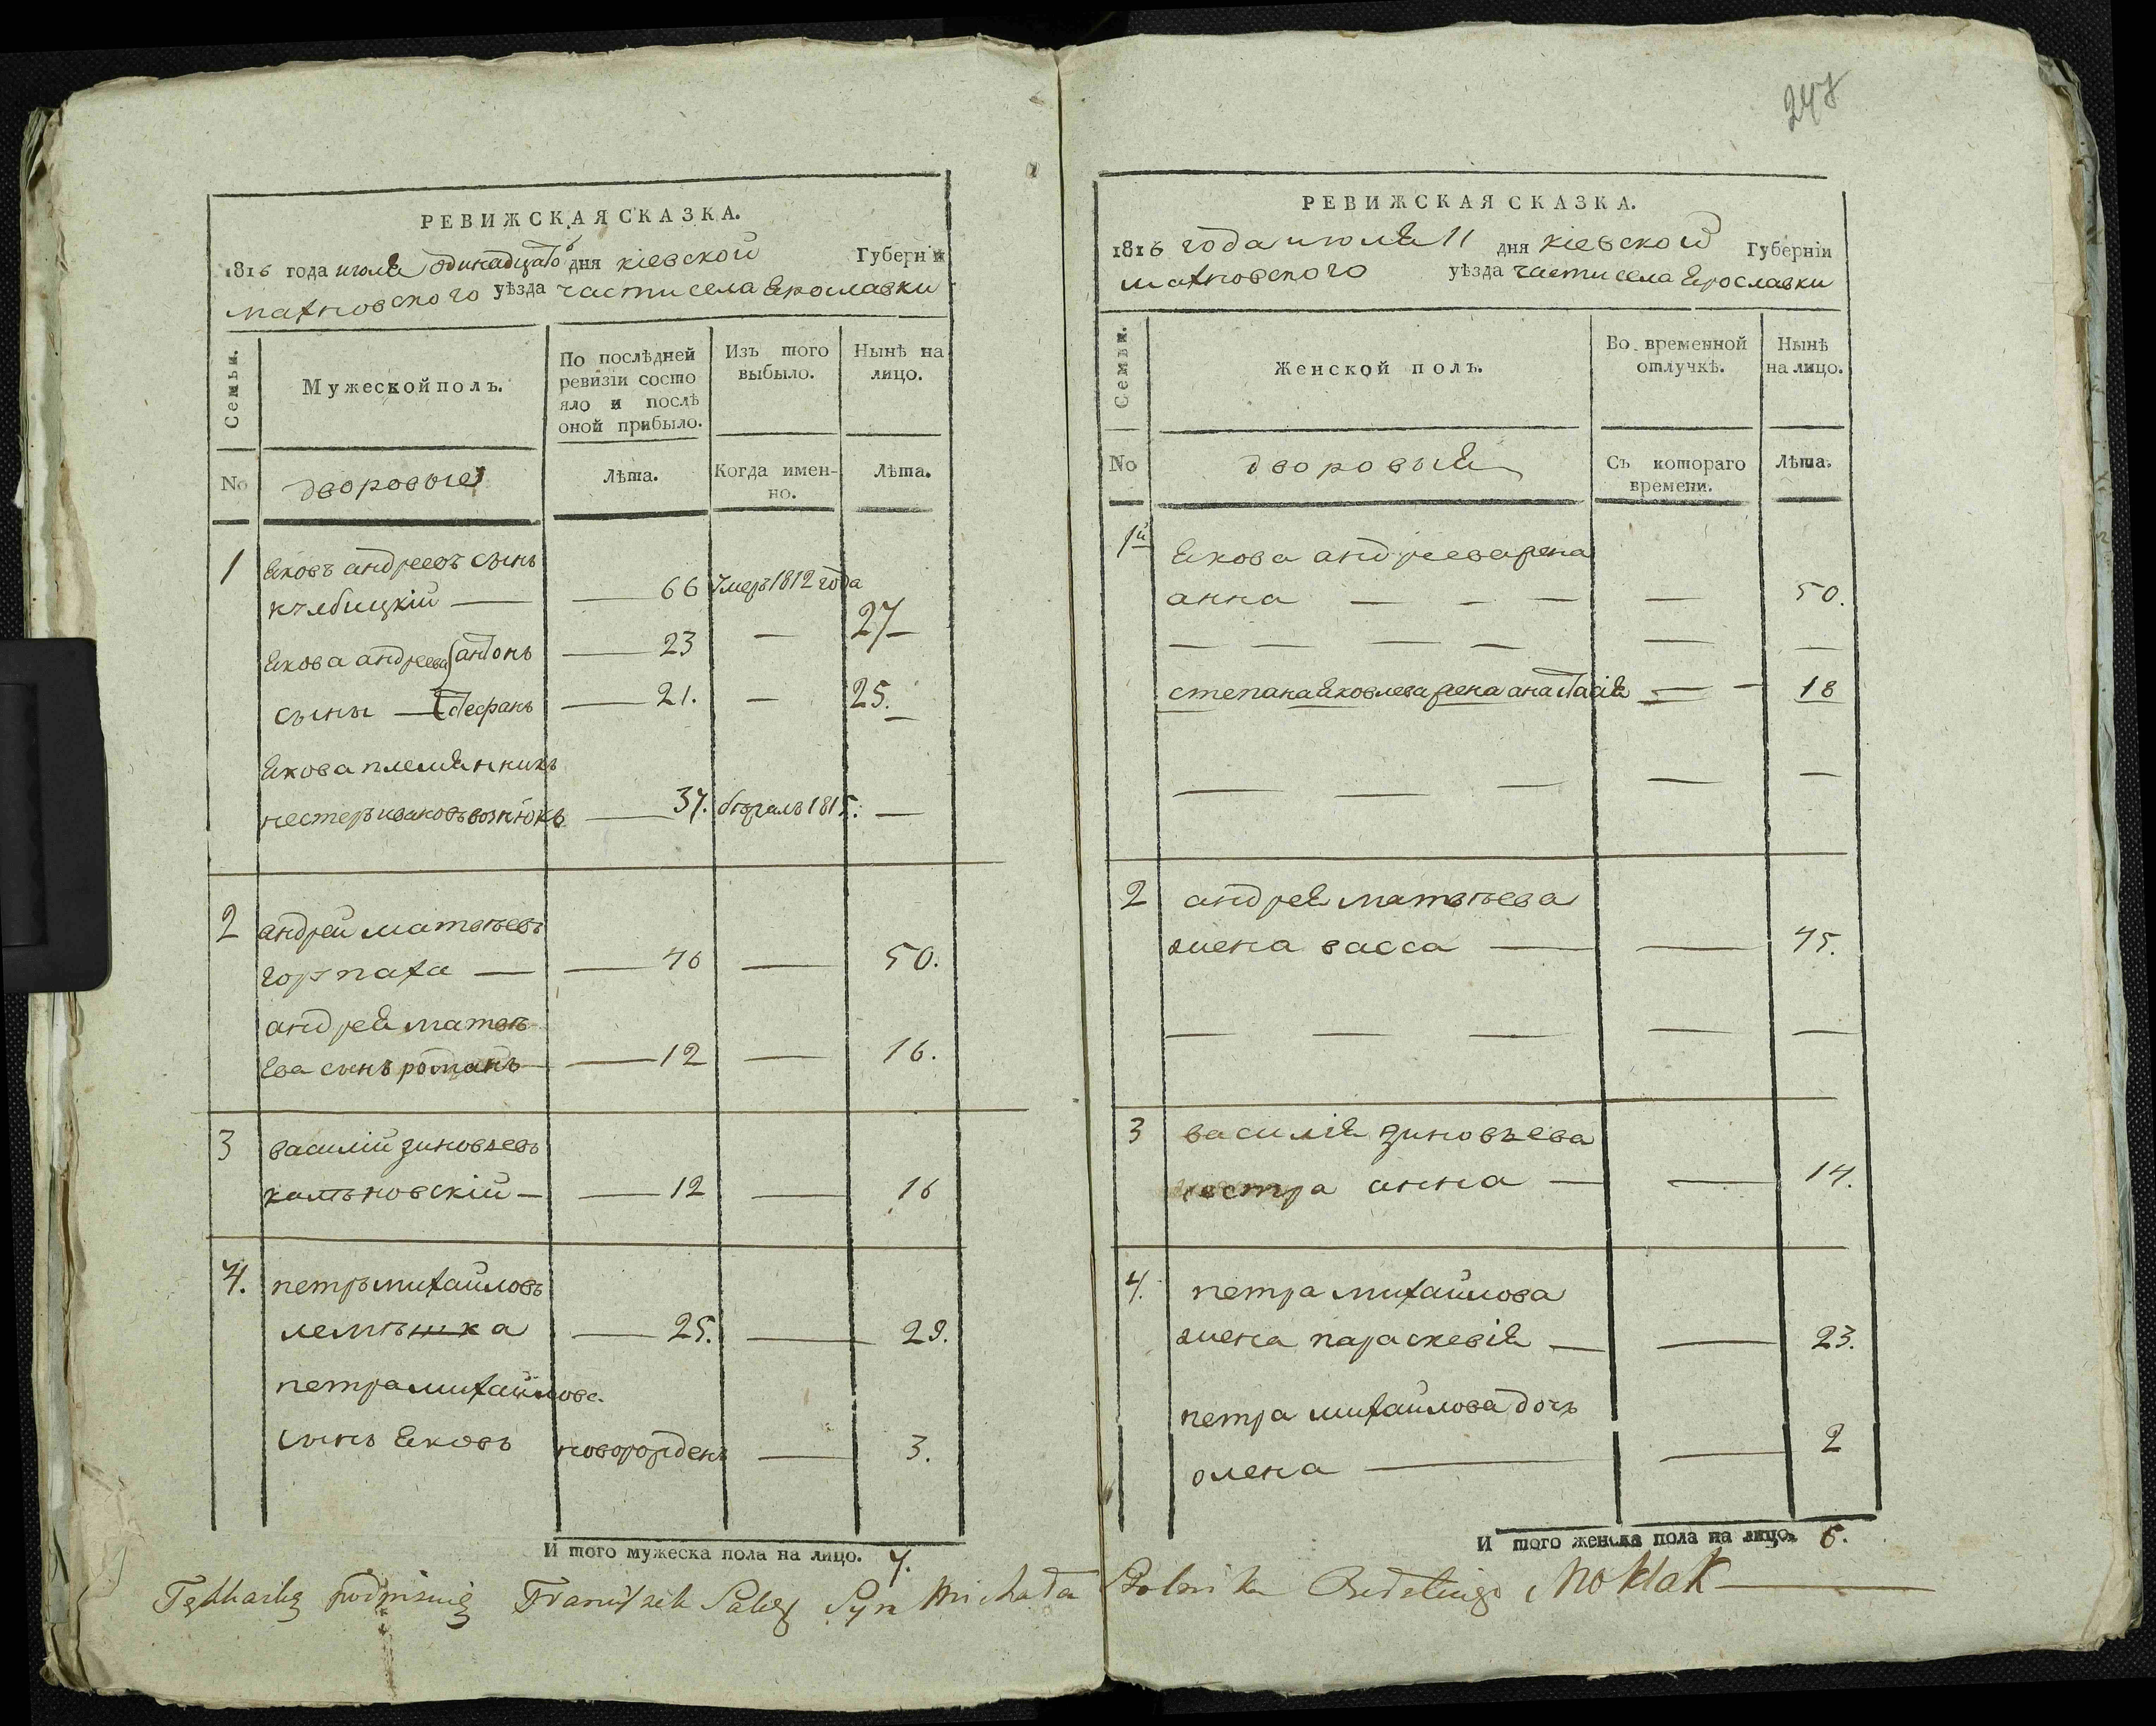 247
РЕВИЖСКАЯ СКАЗКА.
1816 года июля одинадцато дня кіевской Губерніи
махновского уѣзда части села Ярославки
Семьи.
Мужеской полъ.
По послѣдней ревизіи состо
яло и послѣ оной прибыло.
Изъ того выбыло.
Нынѣ на лицо.
No
дворовые
Лѣта.
Когда имен-
но.
Лѣта.
1 Яковъ андреевъ сынъ
кулбицкій — — 66 Умеръ 1812 года
Якова андреева антонъ — 23 — 27 —
сыны — Стефанъ — 21. — 25.
Якова племянникъ
нестеръ ивановъ вознюкъ — 37. бѣжалъ 1815. —
2 андрей матвѣевъ
горпаха — — 46 — 50.
андрея матвѣ
ева сынъ романъ — 12 — 16.
3 василій зиновьевъ
калѣновскій — — 12 — 16
4. петръ михайловъ
лемѣшка — 25. — 29.
петра михайлова
сынъ Яковъ новорожденъ — 3.
И того мужеска пола на лицо. 7.
РЕВИЖСКАЯ СКАЗКА.
1816 года июля 11 дня кіевской Губерніи
махновского уѣзда части села Ярославки
Семьи.
Женской полъ.
Во временной
отлучкѣ.
Нынѣ
на лицо.
No
дворовыя
Съ котораго
времени.
Лѣта.
1й Якова андреева жена
анна — — — — 50.
— — — — — —
степана Яковлева жена анастасія — — 18
— — — — —
2 андрея матвѣева
жена васса — — 45.
— — — — —
3 василія зиновьева
сестра анна — — 14.
4. петра михайлова
жена параскевія — — 23.
петра михайлова дочь
олена — — 2
И того женска пола на лицо. 6.
Franciszek Syn Michała